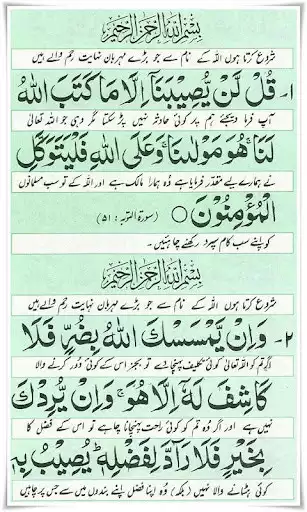 بِسْمِ اللهِ الرَّحْمٰنِ الرَّحِيْمِ
شروع کرتا ہوں اللہ کے نام سے جو بڑے مہربان نہایت رحم والے ہیں
۱۔ قُلْ لَّنْ يُّصِيْبَنَآ اِلَّا مَا كَتَبَ اللهُ
آپ فرما دیجئے ہم پر کوئی حادثہ نہیں پڑ سکتا مگر وہی جو اللہ تعالیٰ
لَنَا ۚ هُوَ مَوْلٰىنَا ۚ وَعَلَى اللهِ فَلْيَتَوَكَّلِ
نے ہمارے لیے مقدر فرمایا ہے وہ ہمارا مالک ہے اور اللہ کے تو سب مسلمانوں
الْمُؤْمِنُوْنَ ○ (سورۃ التوبہ : ۵۱)
کو اپنے سب کام سپرد رکھنے چاہئیں۔
بِسْمِ اللهِ الرَّحْمٰنِ الرَّحِيْمِ
شروع کرتا ہوں اللہ کے نام سے جو بڑے مہربان نہایت رحم والے ہیں
۲۔ وَاِنْ يَّمْسَسْكَ اللهُ بِضُرٍّ فَلَا
اگر تم کو اللہ تعالیٰ کوئی تکلیف پہنچائے تو بجز اس کے کوئی دور کرنے والا
كَاشِفَ لَهٗٓ اِلَّا هُوَ ۚ وَاِنْ يُّرِدْكَ
نہیں ہے اور اگر وہ تم کو کوئی راحت پہنچانا چاہے تو اس کے فضل کا
بِخَيْرٍ فَلَا رَآدَّ لِفَضْلِهٖ ؕ يُصِيْبُ بِهٖ
کوئی ہٹانے والا نہیں (بلکہ) وہ اپنا فضل اپنے بندوں میں سے جس پر چاہیں